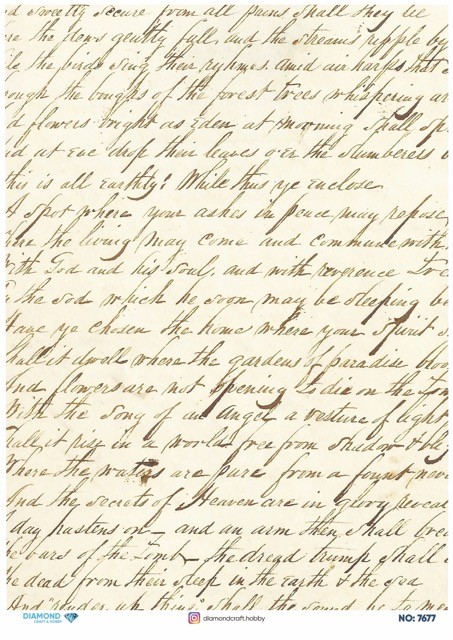 sweetly secure from all pains shall they lie
the dews gently fall, and the streams ripple by
the birds sing their rhymes amid air harps that
the boughs of the forest trees whispering
flowers bright as Eden at morning shall
at eve drop their leaves o'er the slumberers
this is all earthly! While thus ye enclose
A spot where your ashes in peace may repose
the living may come and commune with
With God and his soul, and with reverence
the sod which he soon may be sleeping
Have ye chosen the home where your Spirit
Shall it dwell where the gardens of paradise
And flowers are not opening to die on the
With the song of an angel a vesture of light
Shall it rise in a world free from shadow &
Where the waters are pure from a fount
And the secrets of Heaven are in glory
day hastens on— and an arm then shall
bars of the tomb— the dread trump shall
dead from their sleep in the earth & the sea
And "render up thine" shall the sound
DIAMOND
CRAFT & HOBBY
diamondcraft.hobby
NO: 7677